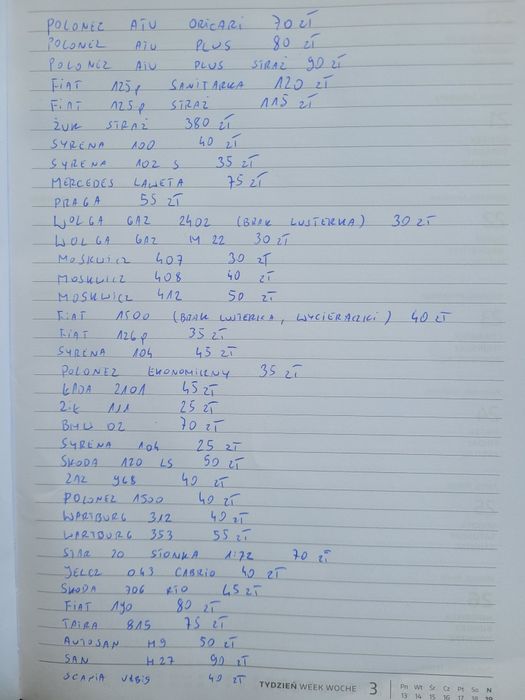 POLONEZ ATU ORICARI 70 zł
POLONEZ ATU PLUS 80 zł
POLONEZ ATU PLUS STRAŻ 90 zł
FIAT 125p SANITARKA 120 zł
FIAT 125p STRAŻ 115 zł
ŻUK STRAŻ 380 zł
SYRENA 100 40 zł
SYRENA 102 S 35 zł
MERCEDES LAWETA 75 zł
PRAGA 55 zł
WOLGA GAZ 2402 (BRAK LUSTERKA) 30 zł
WOLGA GAZ M 22 30 zł
MOSKWICZ 407 30 zł
MOSKWICZ 408 40 zł
MOSKWICZ 412 50 zł
FIAT 1500 (BRAK LUSTERKA, WYCIERACZKI) 40 zł
FIAT 126p 35 zł
SYRENA 104 45 zł
POLONEZ EKONOMICZNY 35 zł
ŁADA 2101 45 zł
ZIŁ 111 25 zł
BMW 02 70 zł
SYRENA 104 25 zł
SKODA 120 LS 50 zł
ZAZ 968 40 zł
POLONEZ 1500 40 zł
WARTBURG 312 40 zł
WARTBURG 353 55 zł
STAR 20 SIONKA 1:72 70 zł
JELCZ 043 CABRIO 40 zł
SKODA 706 RTO 45 zł
FIAT 190 80 zł
TATRA 815 75 zł
AUTOSAN H9 50 zł
SAN H27 90 zł
SCANIA 40 zł
TYDZIEŃ WEEK WOCHE 3 Pn Wt Śr Cz Pt So N
13 14 15 16 17 18 19